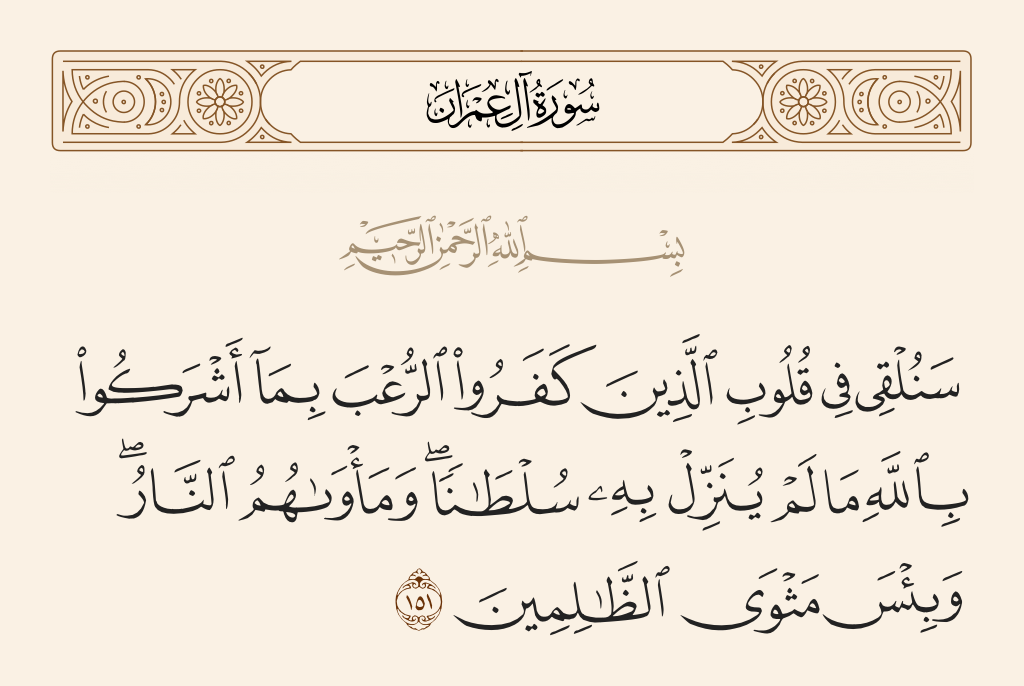 سُورَةُ آلِ عِمْرَان
بِسْمِ ٱللَّهِ ٱلرَّحْمَٰنِ ٱلرَّحِيمِ
سَنُلْقِى فِى قُلُوبِ ٱلَّذِينَ كَفَرُوا۟ ٱلرُّعْبَ بِمَآ أَشْرَكُوا۟
بِٱللَّهِ مَا لَمْ يُنَزِّلْ بِهِۦ سُلْطَـٰنًا ۖ وَمَأْوَىٰهُمُ ٱلنَّارُ ۖ
وَبِئْسَ مَثْوَى ٱلظَّـٰلِمِينَ ١٥١